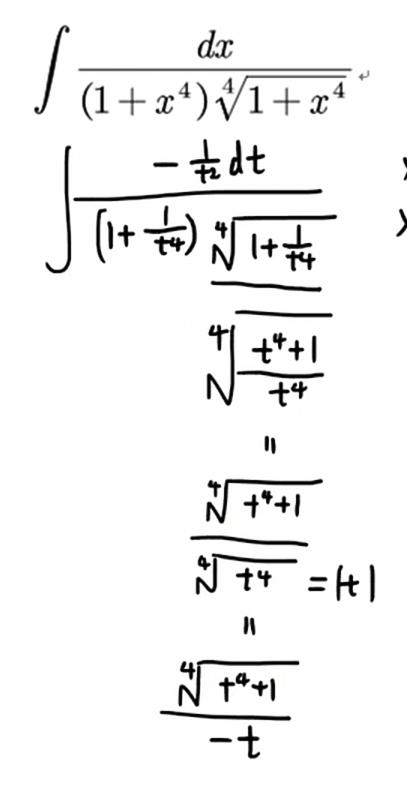 ∫ dx / ((1+x⁴) ∜(1+x⁴))
∫ (-1/t² dt) / ((1+1/t⁴) ∜(1+1/t⁴))
∜((t⁴+1)/t⁴)
=
∜(t⁴+1) / ∜(t⁴) = |t|
=
∜(t⁴+1) / -t